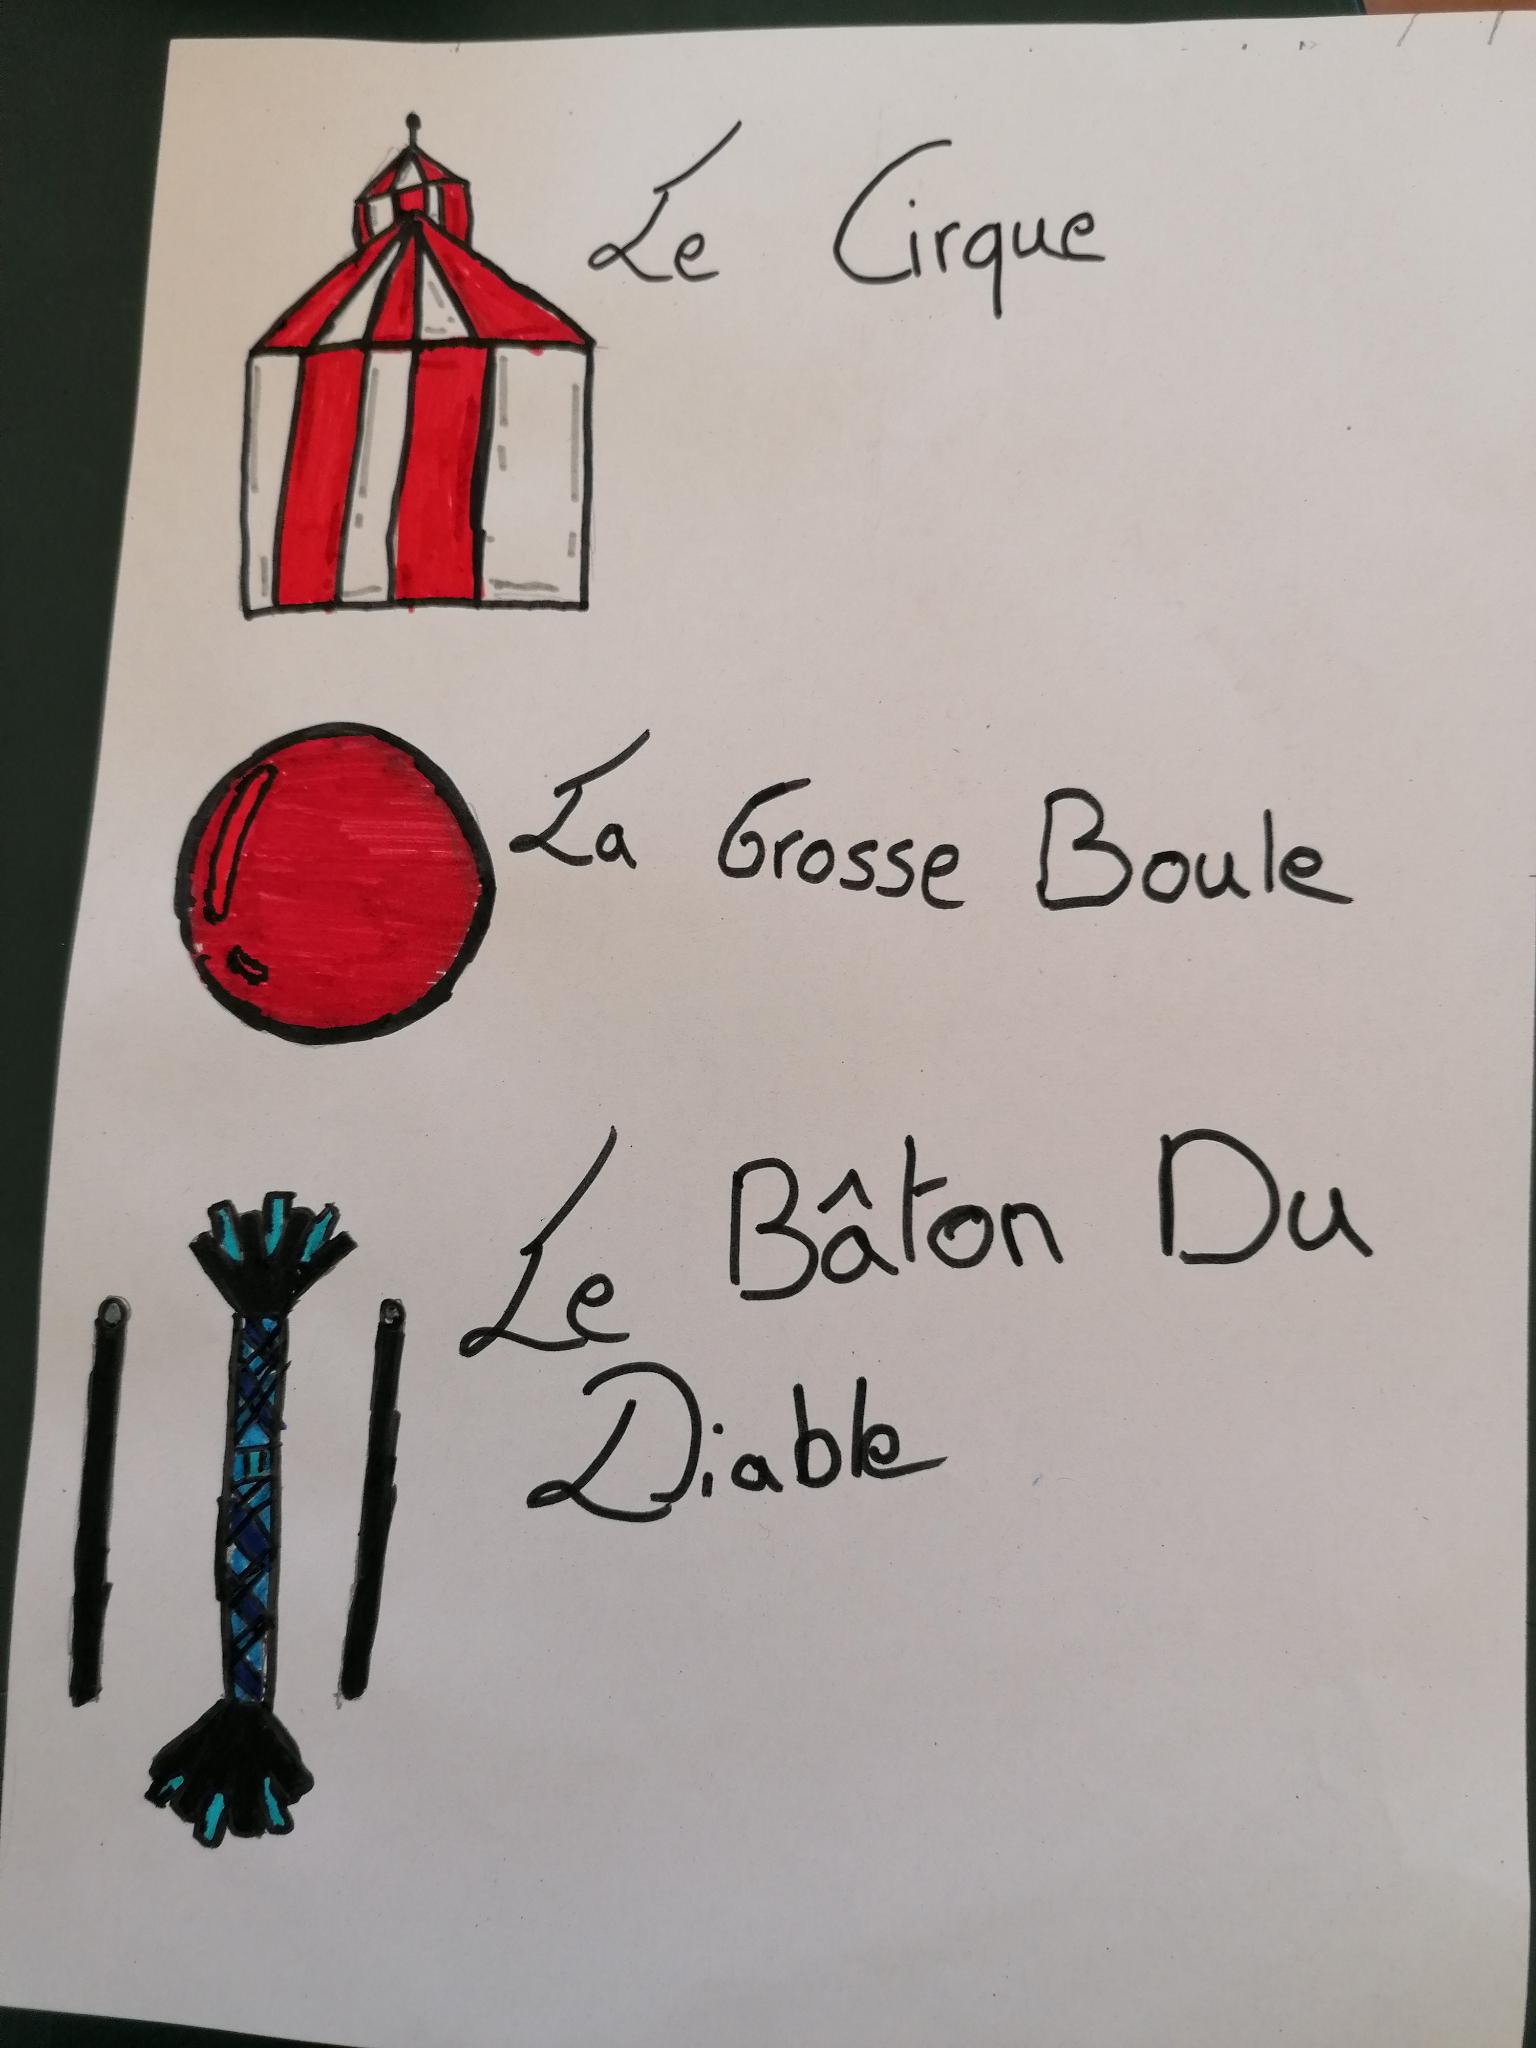 Le Cirque
La Grosse Boule
Le Bâton Du
Diable